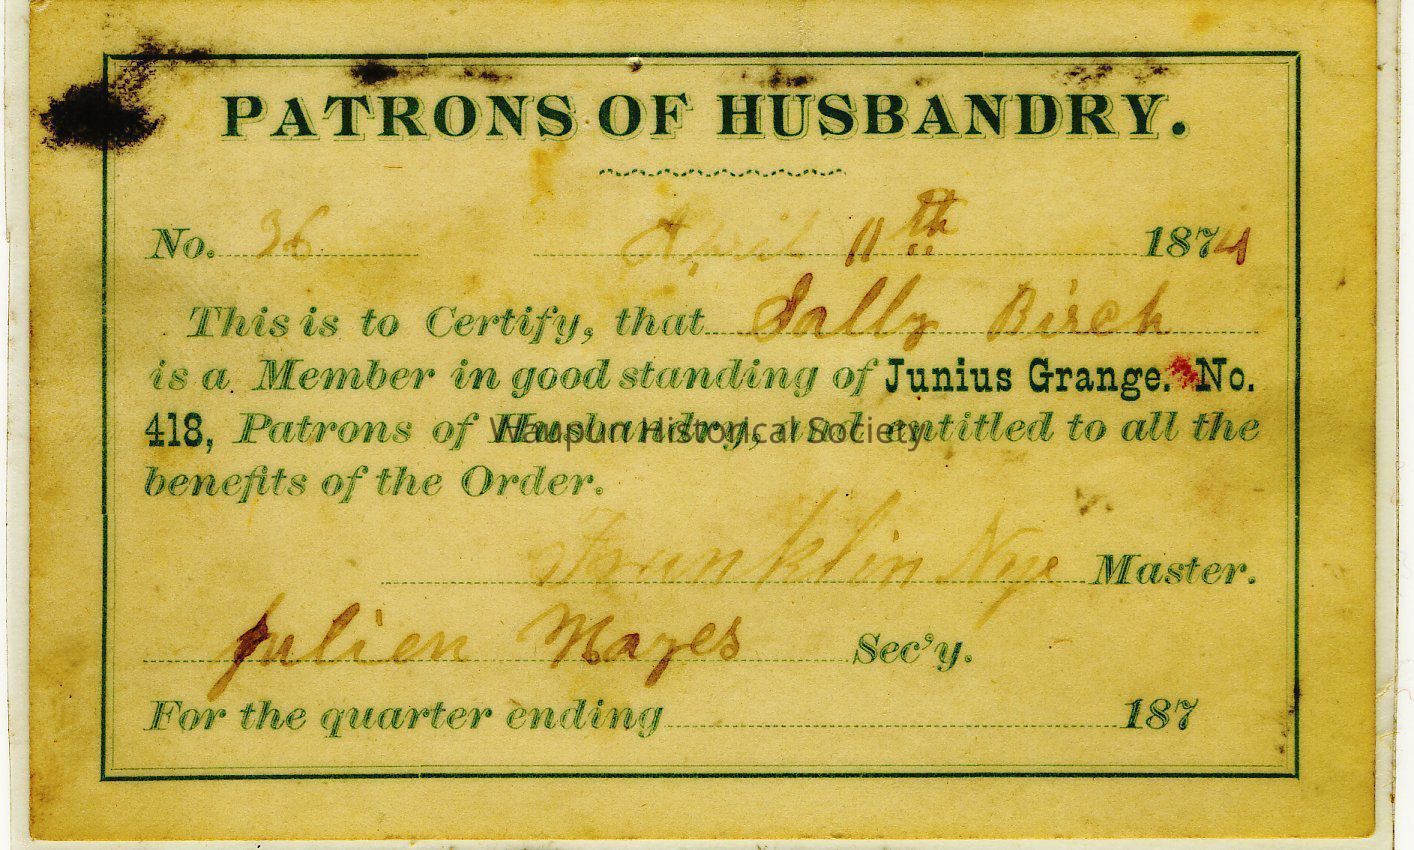 PATRONS OF HUSBANDRY.
No. 36 April 11th 1874
This is to Certify, that Sally Birch
is a Member in good standing of Junius Grange. No.
418, Patrons of Husbandry, and entitled to all the
Waupun Historical Society
benefits of the Order.
Franklin Nye Master.
Julien Mayes Sec'y.
For the quarter ending 187